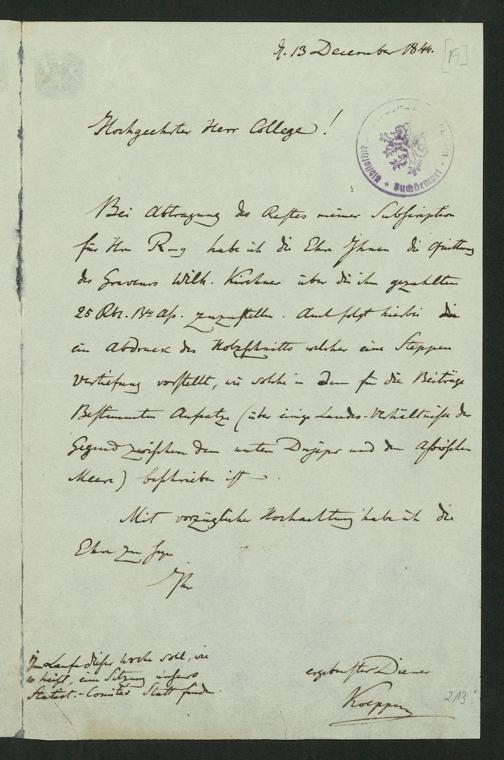 d. 13 December 1844.
[19]
Hochgeehrter Herr College!
Bei Abtragung des Restes meiner Subscription
für Hrn habe ich die Ehre Ihnen die Quittung
des Graveurs Wilh. Kirchner über die ihm gezahlten
25 Rbl. zuzustellen. Auch folgt hierbei
ein Abdruck des Holzschnitts welcher eine Steppen
Vertiefung vorstellt, wie solche in dem für die Beiträge
Bestimmten Aufsatze (über einige Landes-Verhältnisse der
Gegend zwischen dem untern Dnjepr und dem Asowschen
Meere) beschrieben ist.
Mit vorzüglicher Hochachtung habe ich die
Ehre zu seyn
Ihr
ergebenster Diener
Koeppen
Im Laufe dieser Woche soll, wie
es heißt, eine Sitzung unseres
Statist.-Comités Statt finden.
213
Buchstempel